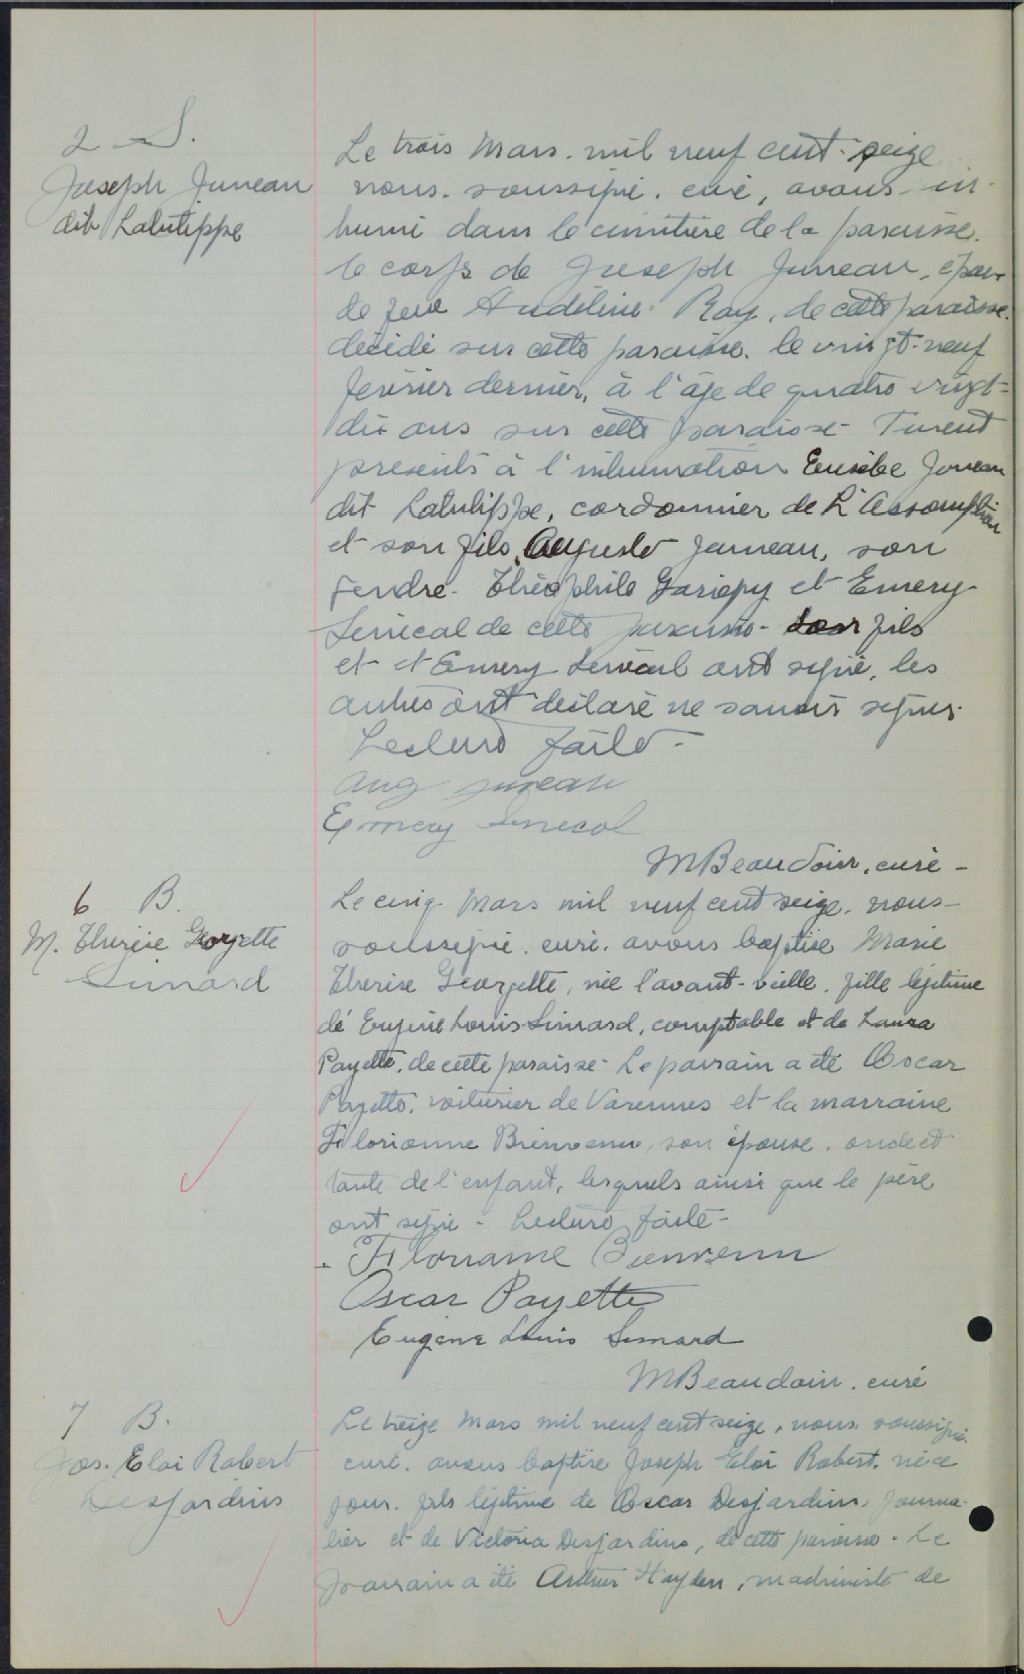 2 S.
Joseph Juneau
dit Latulippe
Le trois Mars. mil neuf cent seize
nous. soussigné. curé, avons in-
humé dans le cimitière de la paroisse.
le corps de Joseph Juneau, époux
de feue Audéline Ray, de cette paroisse.
décédé sur cette paroisse. le vingt-neuf
février dernier, à l'âge de quatre vingt-
dix ans sur cette paroisse - Furent
presents à l'inhumation Eusèbe Juneau
dit Latulippe, cordonnier de L'Assomption
et son fils, Auguste Juneau, son
gendre. Théophile Gariepy et Emery
Senécal de cette paroisse - fils
et et Emery Senécal ont signé, les
autres ont déclaré ne savoir signer.
Lecture faite -
Aug Juneau
Emery Senecal
MBeaudoin, curé -
6 B.
M. Thérèse Georgette
Simard
Le cinq Mars mil neuf cent seize. nous
soussigné. curé. avons baptisé Marie
Thérèse Georgette, née l'avant-veille. fille légitime
de Eugène Louis Simard, comptable et de Laura
Payette, de cette paroisse - Le parrain a été Oscar
Payette. voiturier de Varennes et la marraine
Florianne Bienvenu, son épouse. oncle et
tante de l'enfant, lesquels ainsi que le père
ont signé - Lecture faite -
Florianne Bienvenu
Oscar Payette
Eugène Louis Simard
MBeaudoin. curé
7 B.
Jos. Eloi Robert
Desjardins
Le treize Mars mil neuf cent seize, nous soussigné.
curé. avons baptisé Joseph Eloi Robert. né ce
jour. fils légitime de Oscar Desjardins, journa-
lier et de Victoria Desjardins, de cette paroisse - Le
parrain a été Arthur Hayden, machiniste de